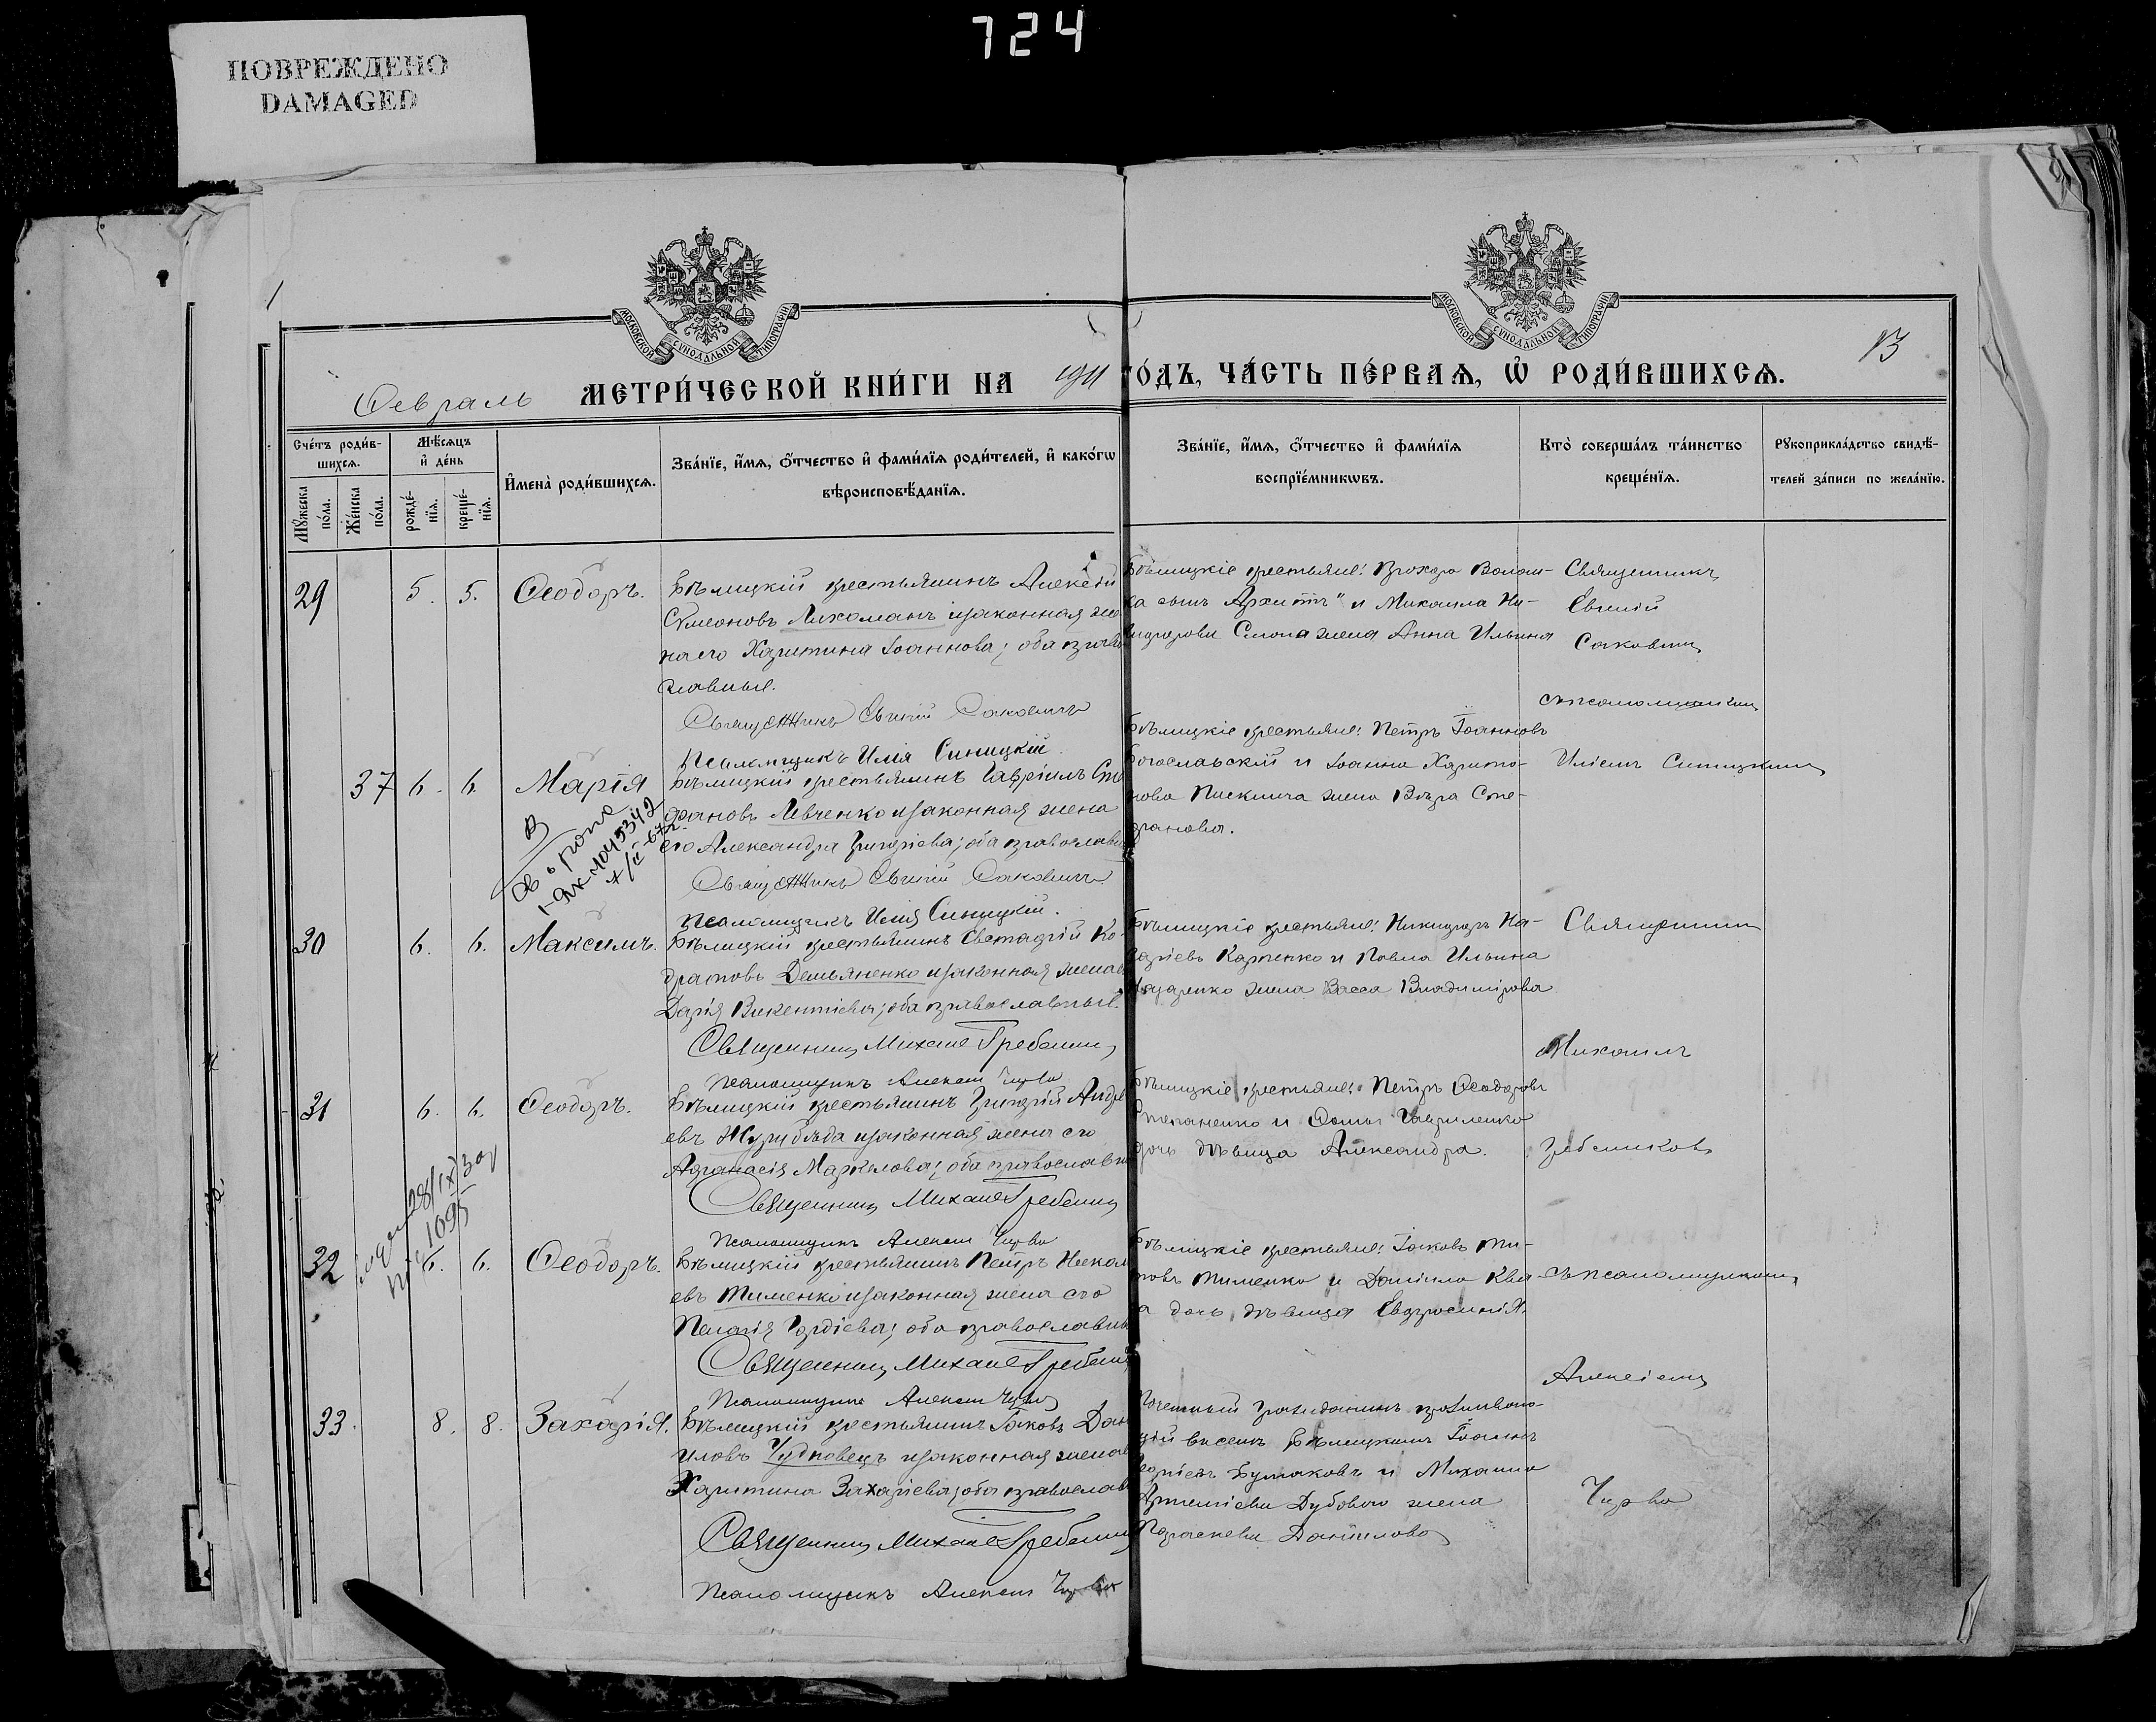 724
ПОВРЕЖДЕНО
DAMAGED
МОСКОВСКОЙ СУНОДАЛЬНОЙ ТИПОГРАФІИ
МОСКОВСКОЙ СУНОДАЛЬНОЙ ТИПОГРАФІИ
13
Февраль МЕТРИ́ЧЕСКОЙ КНИ́ГИ НА 1911 ГО́ДЪ, ЧА́СТЬ ПЕ́РВАѦ, Ѡ҆ РОДИ́ВШИХСѦ.
Сче́тъ роди́в-
шихсѧ.
Мꙋ́жеска по́ла.
Же́нска по́ла.
Мѣ́сѧцъ
и҆ де́нь
рожде́-
нїѧ.
креще́-
нїѧ.
И҆мена̀ роди́вшихсѧ.
Зва́нїе, и҆́мѧ, ѻ҆́тчество и҆ фами́лїѧ роди́телей, и҆ како́гѡ
вѣроисповѣ́данїѧ.
Зва́нїе, и҆́мѧ, ѻ҆́тчество и҆ фами́лїѧ
воспрїе́мникѡвъ.
Кто̀ соверша́лъ та́инство
креще́нїѧ.
Рꙋкоприкла́дство свидѣ́-
телей за́писи по жела́нїю.
29 5. 5. Ѳеодоръ.
Бѣлицкій крестьянинъ Алексій
Сѵмеоновъ Лихоманъ и законная же
на его Харитина Іоаннова; оба право
славные.
Священникъ Евѳимій Саковичъ
Псаломщикъ Илія Синицкій.
Бѣлицкіе крестьяне: Прохора
ка сынъ и Михаила Ни-
жена Анна Ильина
Священникъ
Евѳимій
Саковичъ
съ псаломщикомъ
Иліемъ Синицкимъ
37 6. 6. Марія
Бѣлицкій крестьянинъ Гавріилъ Сте
фановъ Левченко и законная жена
его Александра Григоріева; оба православн
Священникъ Евѳимій Саковичъ
Псаломщикъ Илія Синицкій.
Бѣлицкіе крестьяне: Петръ Іоанновъ
Богославскій и Іоанна Харито-
нова жена Вѣра Сте-
фанова.
30 6. 6. Максимъ.
Бѣлицкій крестьянинъ Евстафій Ко-
дратовъ Демьяненко и законная жена е
Дарія Викентіева; оба православные.
Священникъ Михаилъ Гребениковъ
Псаломщикъ Алексій Чирва
Бѣлицкіе крестьяне: Никифоръ На-
заріевъ Карпенко и Павла Ильина
Назаренко жена Васса Владимірова
Священникъ
Михаилъ
Гребениковъ
31 6. 6. Ѳеодоръ.
Бѣлицкій крестьянинъ Григорій Андре
евъ Журибѣда и законная жена его
Аѳанасія Маркелова; оба православн
Священникъ Михаилъ Гребениковъ
Псаломщикъ Алексій Чирва
Бѣлицкіе крестьяне: Петръ Ѳеодоровъ
Степаненко и Ѳомы Гавриленко
дочь дѣвица Александра.
28/IX 30
1095
32 6. 6. Ѳеодоръ.
Бѣлицкій крестьянинъ Петръ Никола
евъ Тименко и законная жена его
Пелагія Гордіева; оба православны
Священникъ Михаилъ Гребениковъ
Псаломщикъ Алексій Чирва
Бѣлицкіе крестьяне: Іаковъ Ти-
товъ Тименко и Даніила Ква-
ша дочь дѣвица Евфросинія.
съ псаломщикомъ
Алексіемъ
Чирва
33. 8. 8. Захарія.
Бѣлицкій крестьянинъ Іаковъ Дан
иловъ Чудновецъ и законная жена е
Харитина Захаріева; оба православ
Священникъ Михаилъ Гребениковъ
Псаломщикъ Алексій Чирва
Почетный гражданинъ
Іоаннъ
Бумаковъ и Михаила
Артеміева Дубового жена
Параскева Даніилова